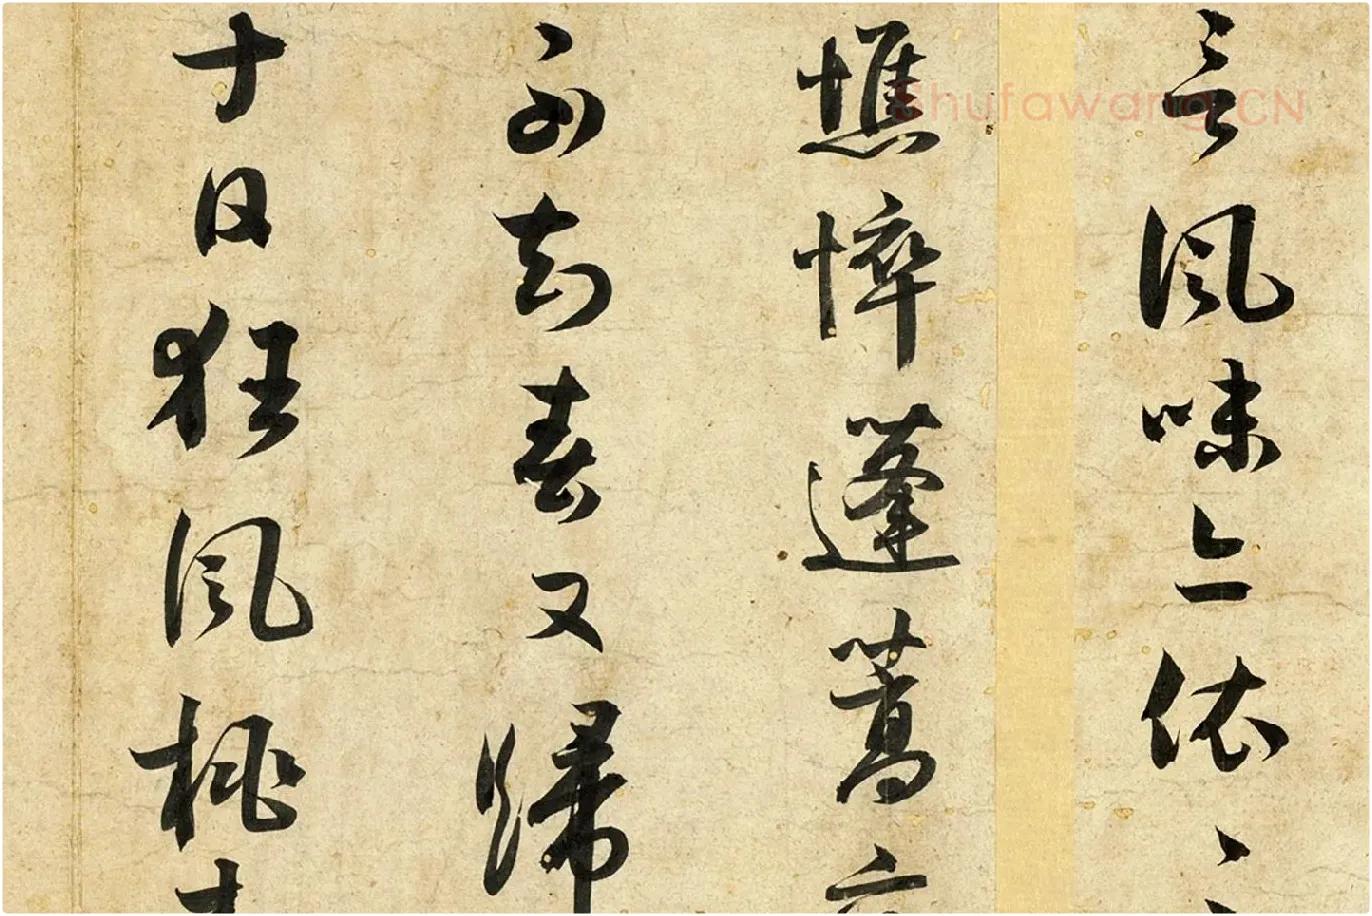 Shufawang.CN
言風味依
憔悴蓬蒿
不知春又歸
十日狂風桃